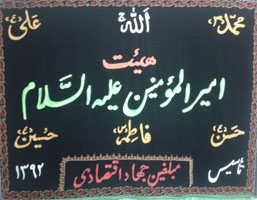 محمد الله علی
هیئت
امیرالمؤمنین علیه السلام
حسن فاطمه حسین
تأسیس ۱۳۹۲
مبلغین جهاد اقتصادی